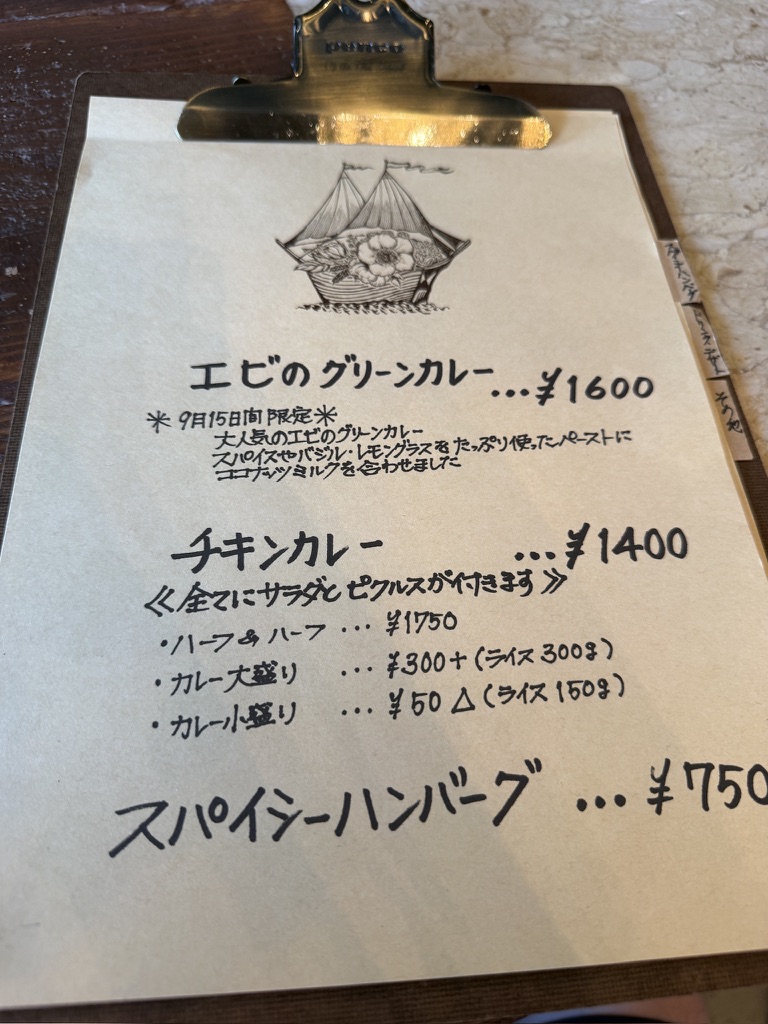 エビのグリーンカレー...¥1600
＊9月15日間限定＊
大人気のエビのグリーンカレー
スパイスやバジル・レモングラスをたっぷり使ったペーストに
ココナッツミルクを合わせました
チキンカレー ...¥1400
≪全てにサラダとピクルスが付きます≫
・ハーフ&ハーフ ... ¥1750
・カレー大盛り ... ¥300+(ライス300g)
・カレー小盛り ... ¥50△(ライス150g)
スパイシーハンバーグ ... ¥750
その他